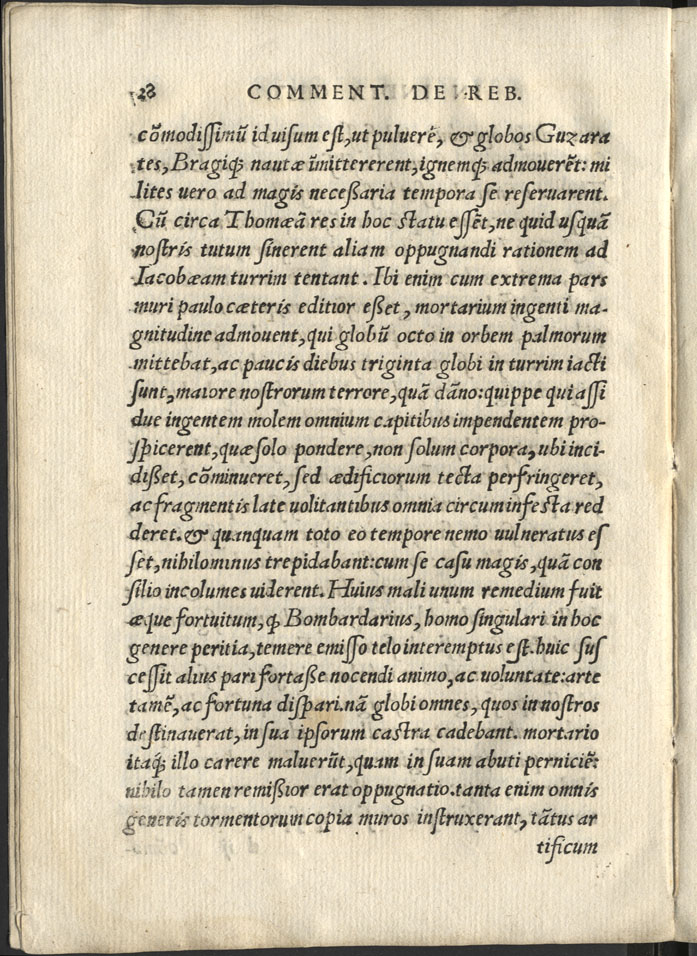 28 COMMENT. DE REB.
cõmodissimũ id uisum est, ut puluerẽ, & globos Guzara
tes, Bragiq́; nautæ ĩmittererent, ignemq́; admouerẽt: mi
lites uero ad magis neceßaria tempora se reseruarent.
Cũ circa Thomæã res in hoc statu essẽt, ne quid usquã
nostris tutum sinerent aliam oppugnandi rationem ad
Iacobæam turrim tentant. Ibi enim cum extrema pars
muri paulo cæteris editior eßet, mortarium ingenti ma-
gnitudine admouent, qui globũ octo in orbem palmorum
mittebat, ac paucis diebus triginta globi in turrim iacti
sunt, maiore nostrorum terrore, quã dãno: quippe qui assi
due ingentem molem omnium capitibus impendentem pro-
spicerent, quæ solo pondere, non solum corpora, ubi inci-
dißet, cõminueret, sed ædificiorum tecta perfringeret,
ac fragmentis late uolitantibus omnia circum infesta red
deret. & quanquam toto eo tempore nemo uulneratus es
set, nihilominus trepidabant: cum se casu magis, quã con
silio incolumes uiderent. Huius mali unum remedium fuit
æque fortuitum, q̃ Bombardarius, homo singulari in hoc
genere peritia, temere emisso telo interemptus est. huic suc
cessit alius pari fortaße nocendi animo, ac uoluntate: arte
tamẽ, ac fortuna dispari. nã globi omnes, quos in nostros
destinauerat, in sua ipsorum castra cadebant. mortario
itaq́; illo carere maluerũt, quam in suam abuti perniciẽ:
nihilo tamen remißior erat oppugnatio. tanta enim omnis
generis tormentorum copia muros instruxerant, tãtus ar
tificum